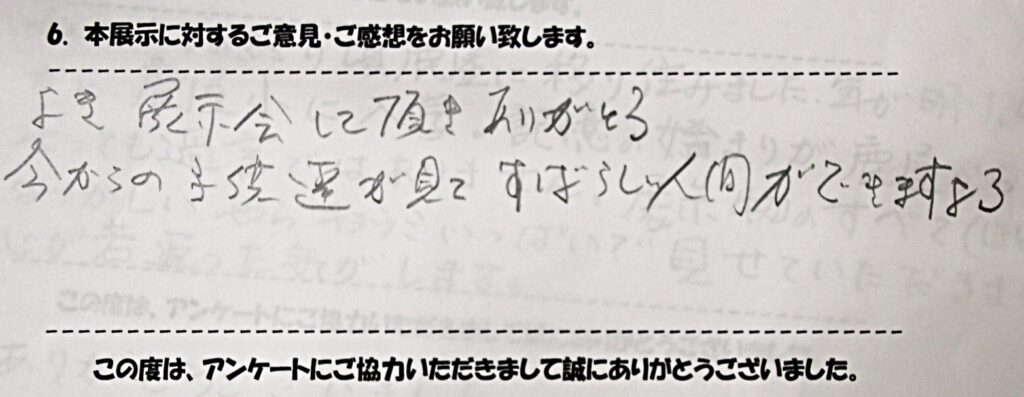 6. 本展示に対するご意見・ご感想をお願い致します。
よき展示会して頂きありがとう
今からの子供達が見てすばらしい人間ができますよう
この度は、アンケートにご協力いただきまして誠にありがとうございました。